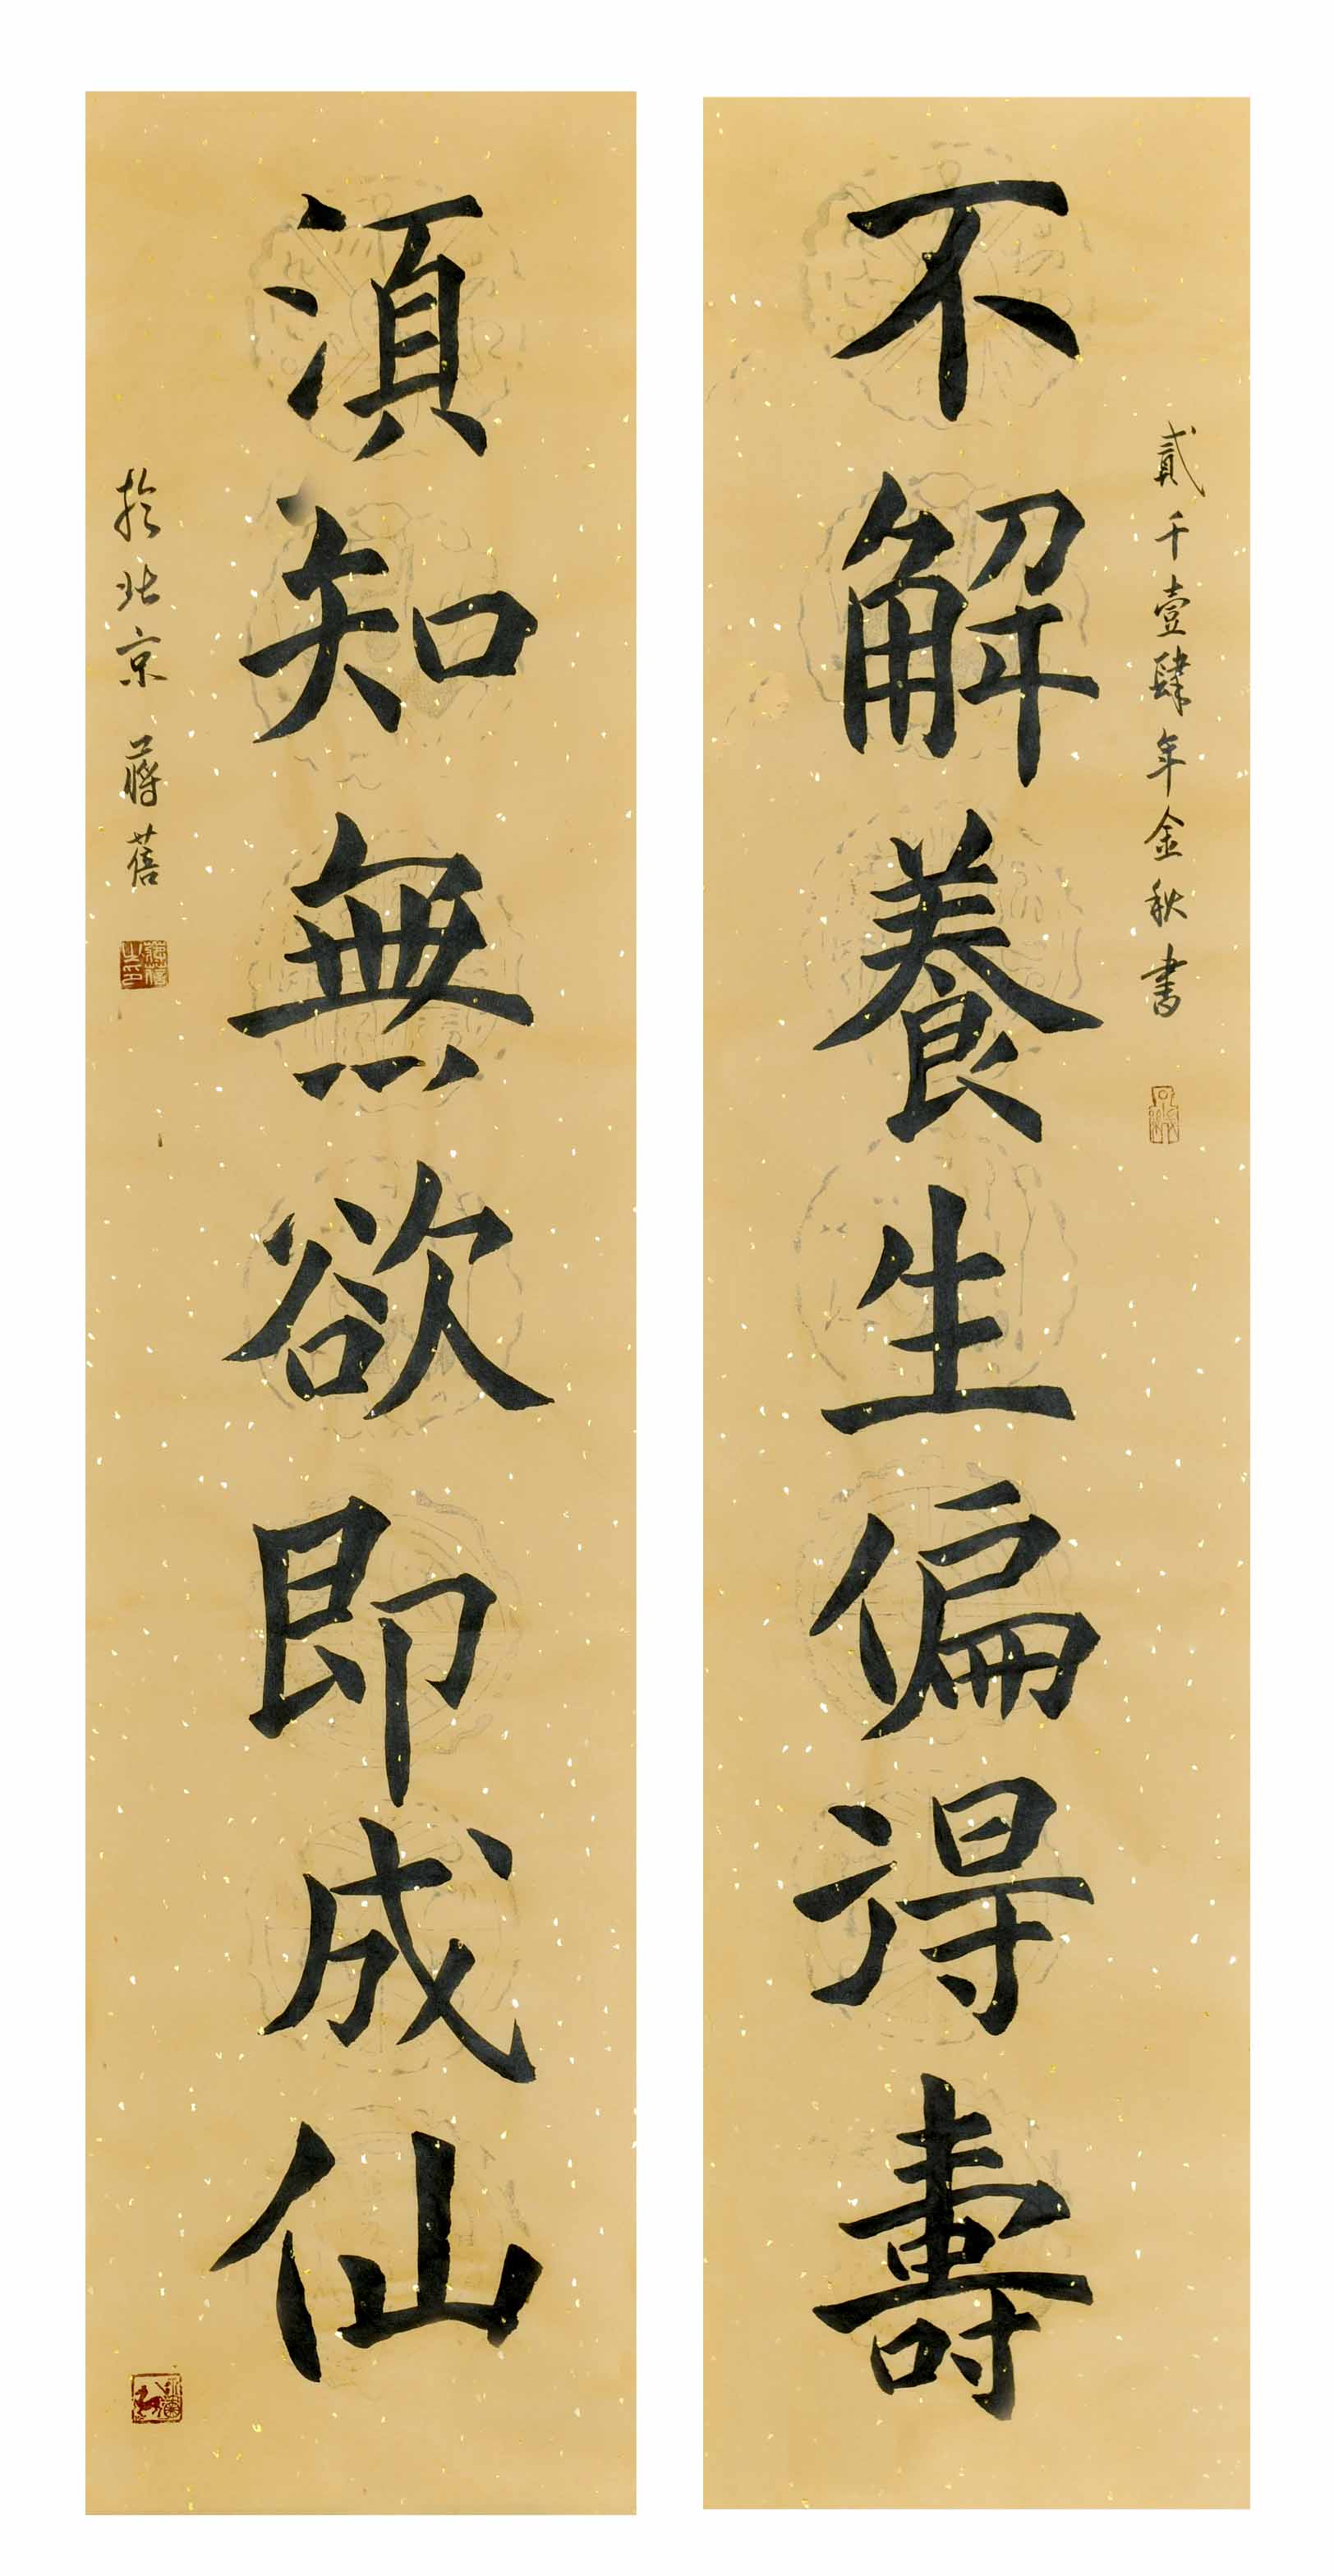 貳千壹肆年金秋書
不解養生偏得壽
須知無欲即成仙
於北京 蔣蓓